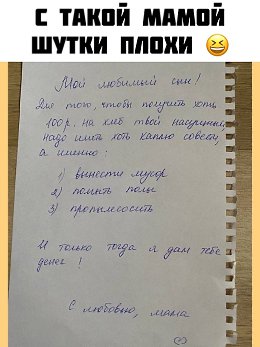 С ТАКОЙ МАМОЙ
ШУТКИ ПЛОХИ 😆
Мой любимый сын!
Для того, чтобы получить хоть
100р. на хлеб твой насущный,
надо иметь хоть каплю совести,
а именно:
1) вынести мусор
2) помыть полы
3) пропылесосить
И только тогда я дам тебе
денег!
С любовью, мама